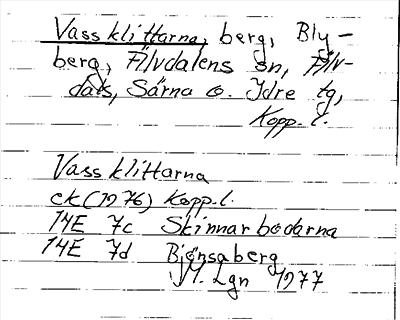 Vassklittarna, berg, Bly-
berg, Älvdalens sn, Älv-
dals, Särna o. Idre tg,
Kopp. l.
Vassklittarna
ek (1976) Kopp. l.
14E 7c Skinnarbodarna
14E 7d Björnsaberg
M. Lgn 1977